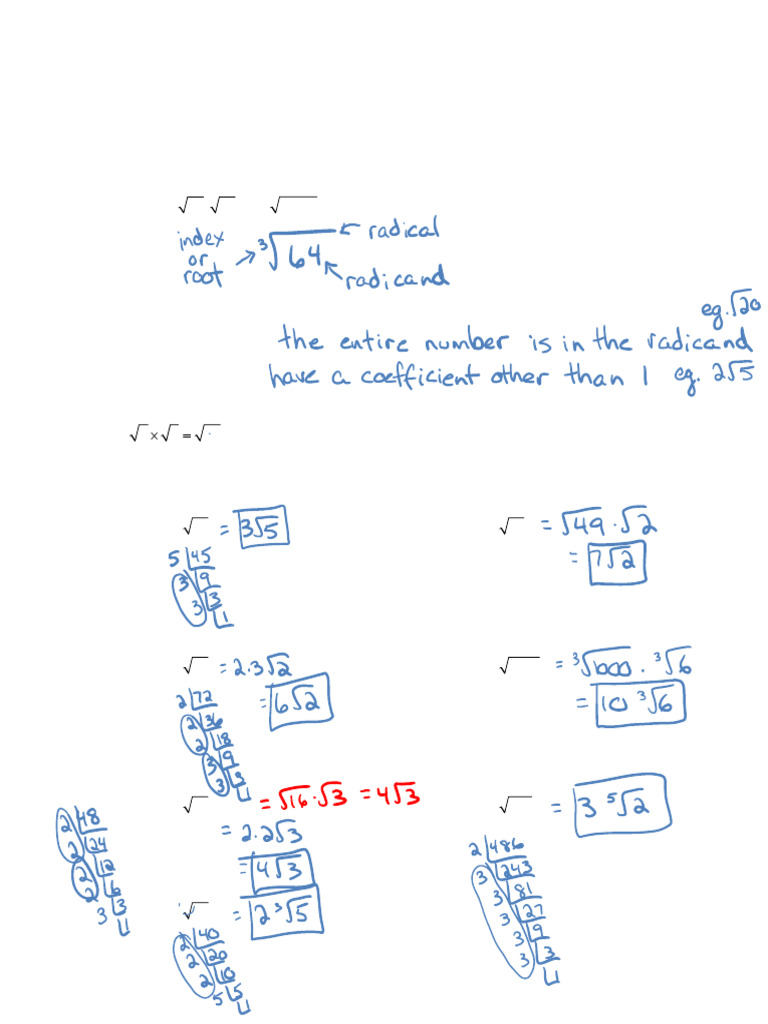 √ √ √
index or root → ³√64 ← radical
← radicand
eg. √20
the entire number is in the radicand
have a coefficient other than 1 eg. 2√5
√ × √ = √
√ = 3√5
5 |45
3 |9
3 |3
|1
√ = √49 · √2
= 7√2
√ = 2·3√2
= 6√2
2 |72
2 |36
2 |18
3 |9
3 |3
√ = ³√1000 · ³√6
= 10 ³√6
√ = √16 · √3 = 4√3
= 2·2√3
= 4√3
2 |48
2 |24
2 |12
2 |6
3 |3
√ = 3 ⁵√2
2 |486
3 |243
3 |81
3 |27
3 |9
3 |3
√ = 2 ³√5
2 |40
2 |20
2 |10
5 |5